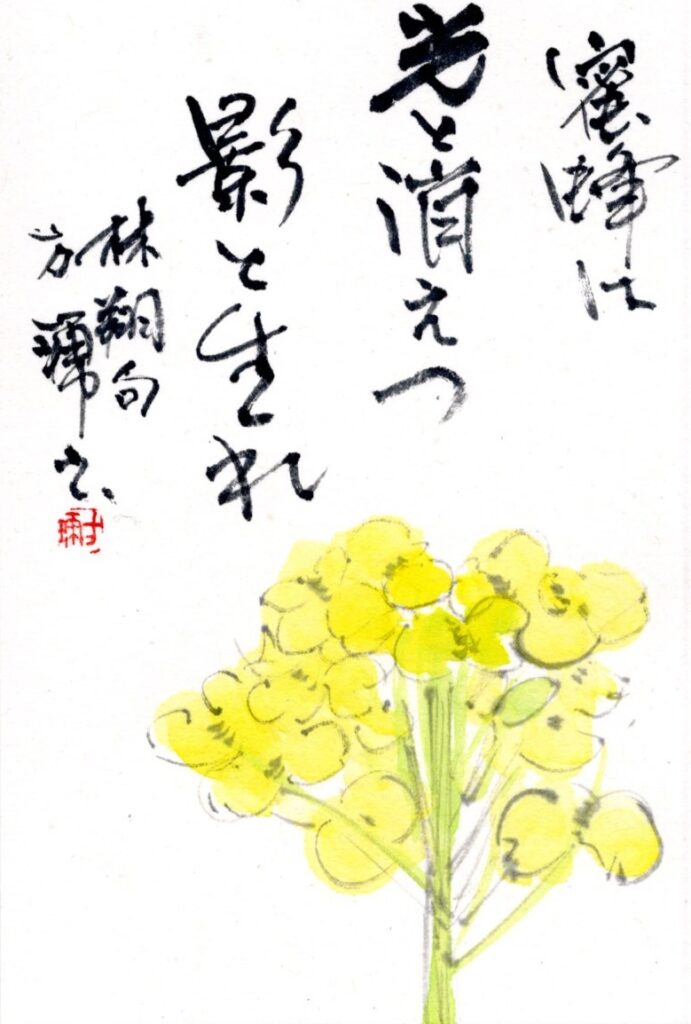 蜜蜂は
光と消えつ
影と生れ
林翔句